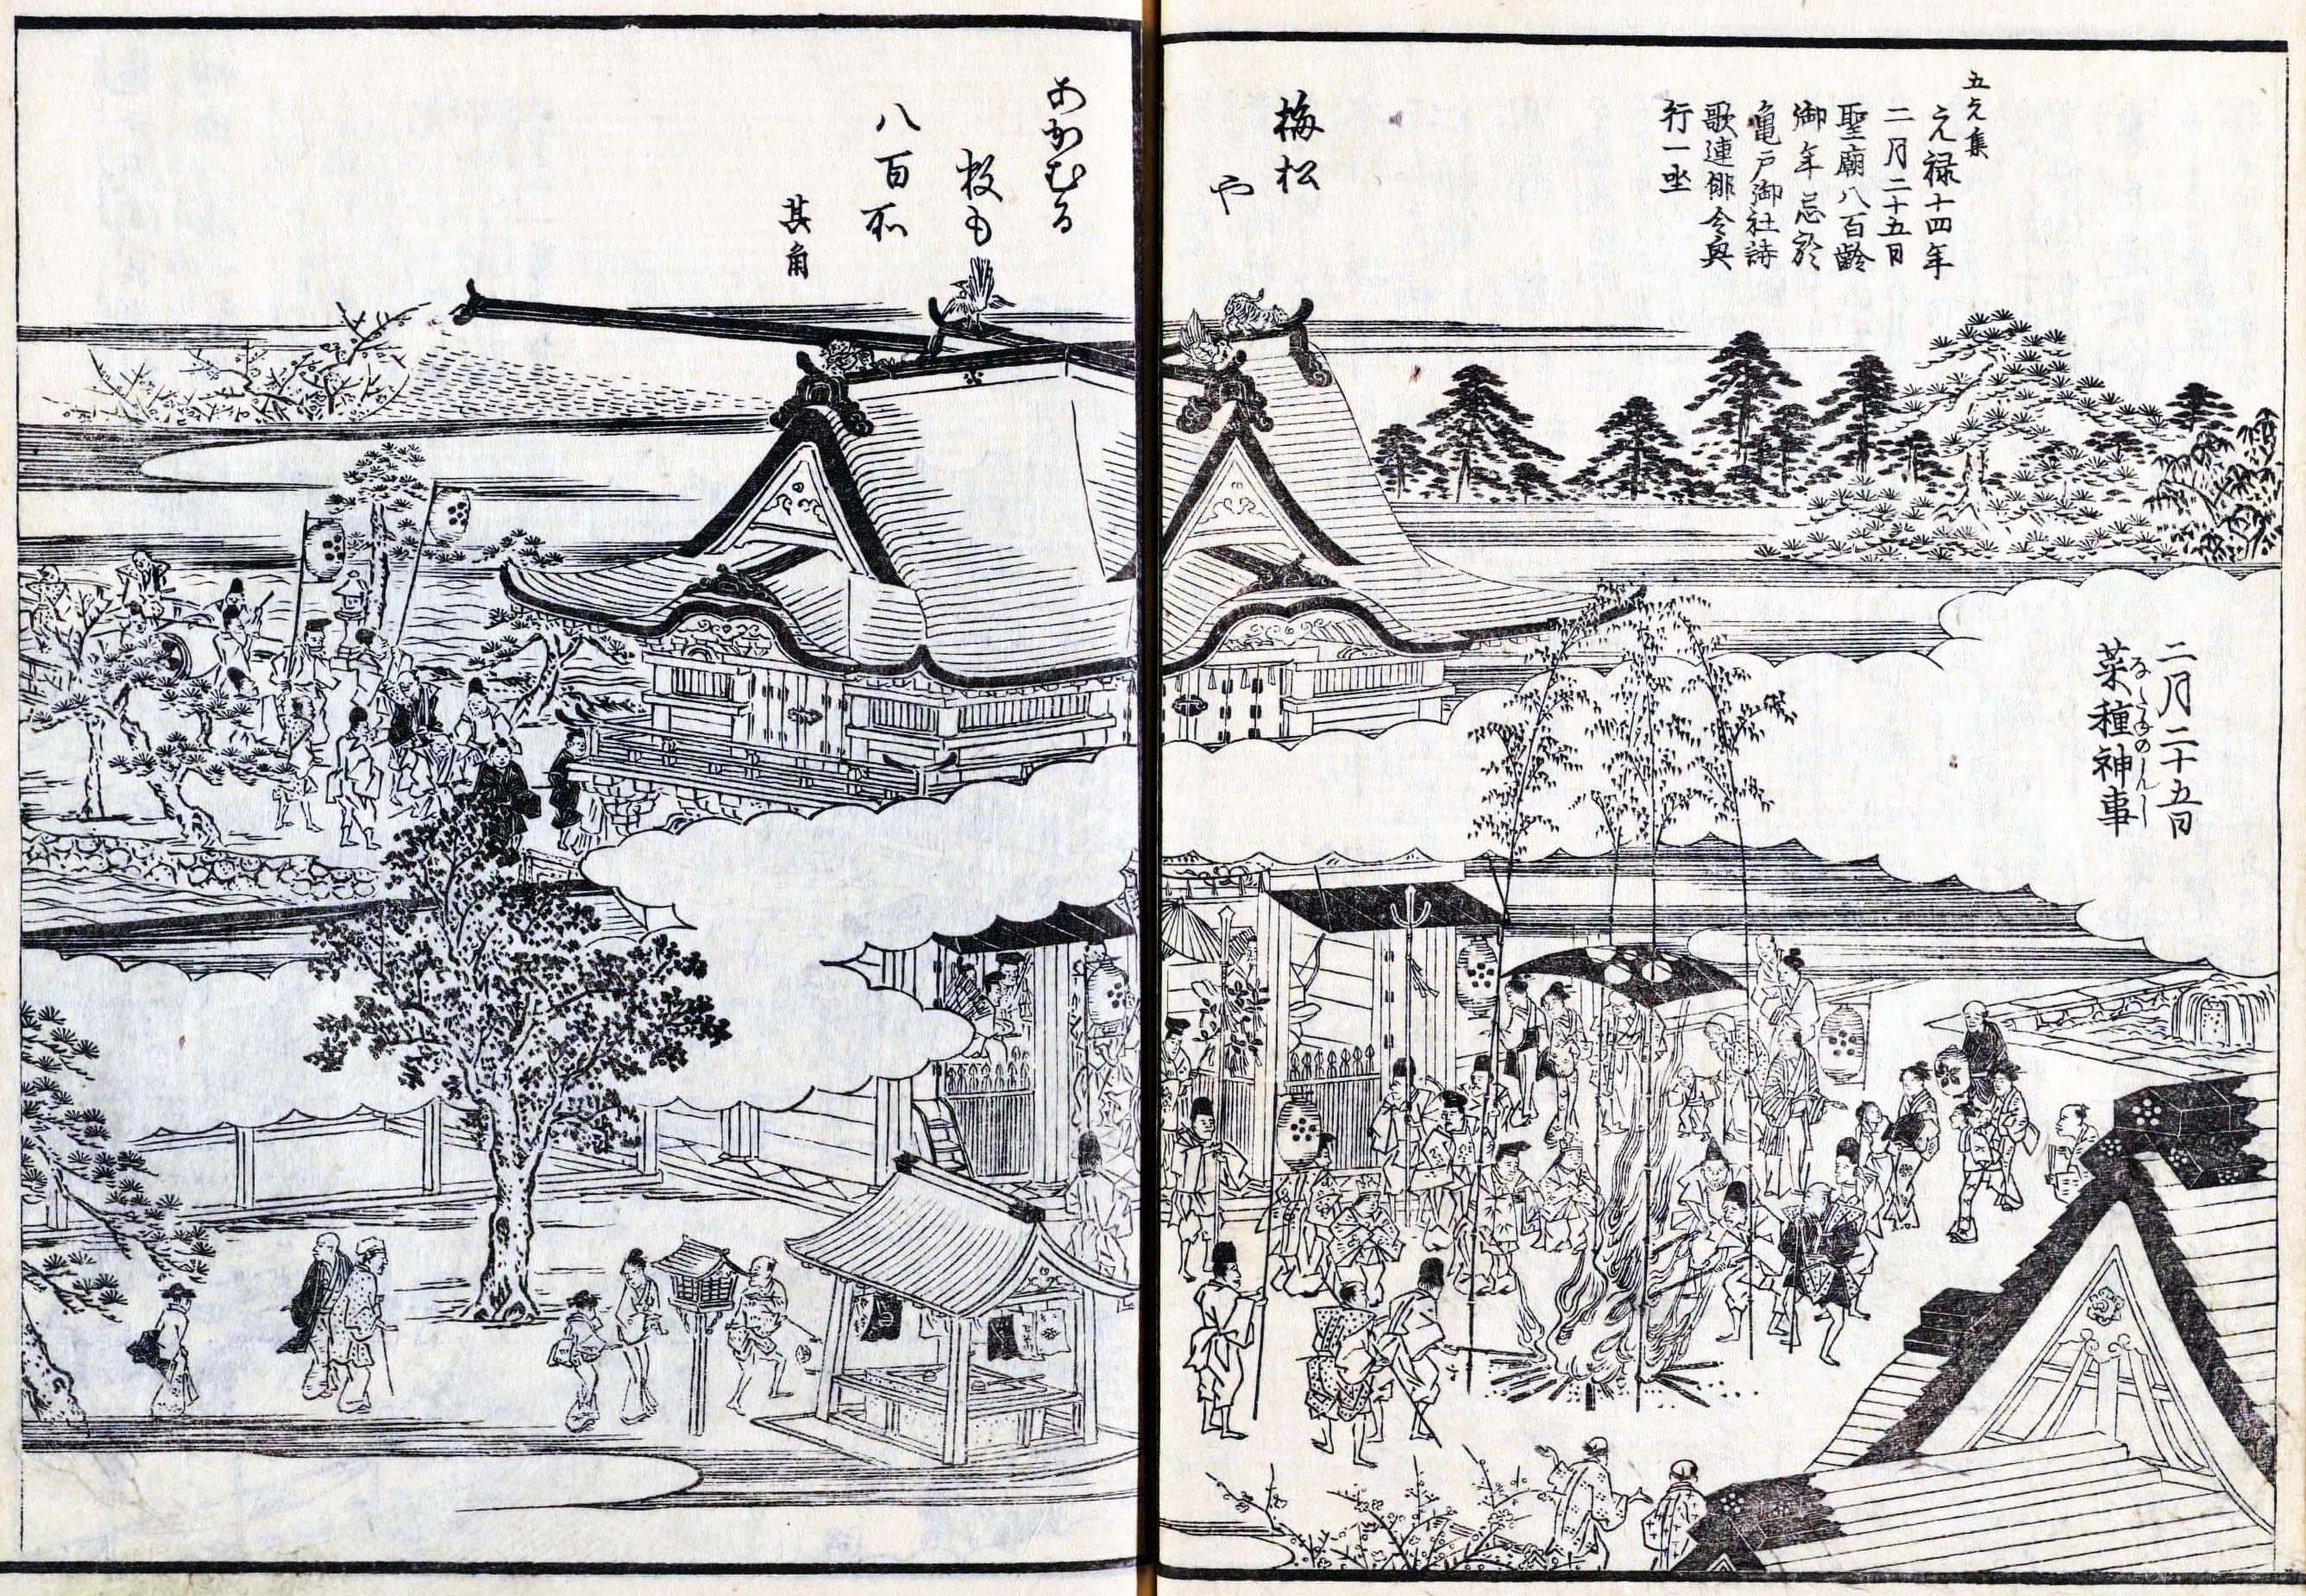 二月二十五日
菜種神事
なたねのしんじ
五元集
元禄十四年
二月二十五日
聖廟八百齢
御年忌於
亀戸御社詩
歌連俳令興
行一坐
梅松
や
あがむる
数も
八百所
其角